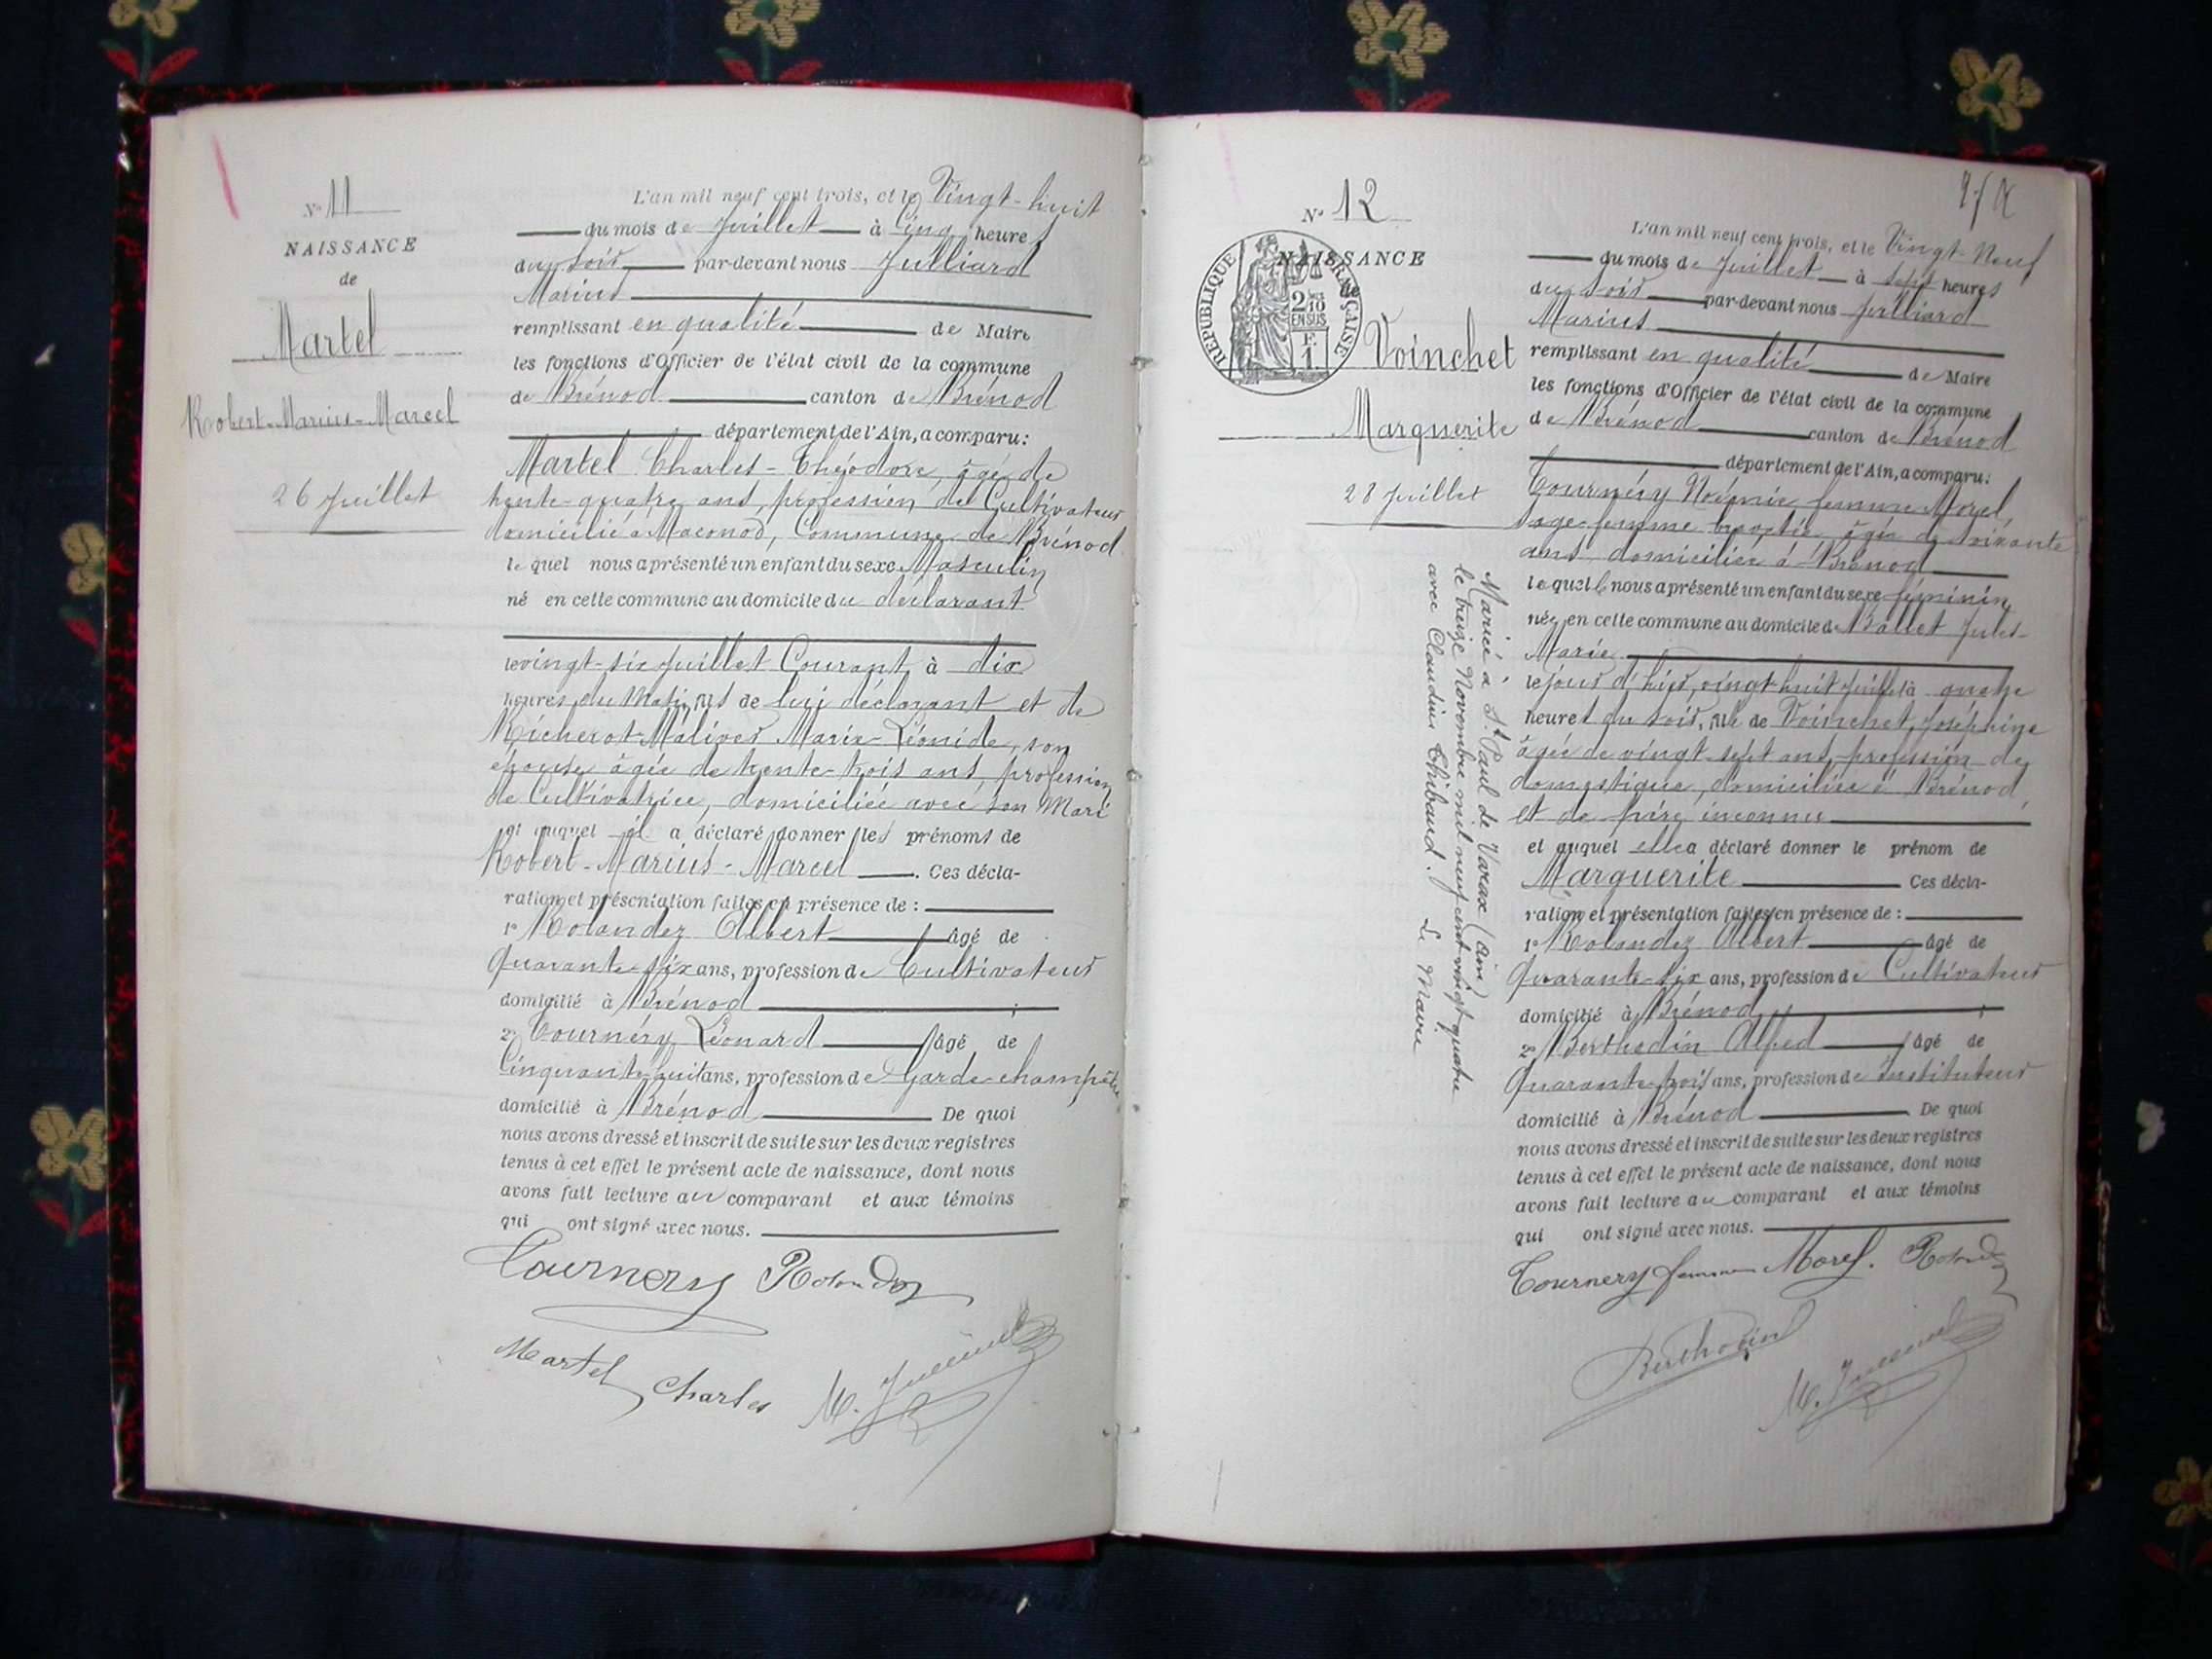 N° 11
NAISSANCE
de
Martel
Robert-Marius-Marcel
26 Juillet
L'an mil neuf cent trois, et le Vingt-huit
du mois de Juillet à Cinq heures
du soir par-devant nous Julliard
Marius
remplissant en qualité de Maire
les fonctions d'Officier de l'état civil de la commune
de Brénod canton de Brénod
département de l'Ain, a comparu:
Martel Charles-Théodore, âgé de
trente-quatre ans, profession de Cultivateur
domicilié à Maconod, Commune de Brénod
lequel nous a présenté un enfant du sexe Masculin
né en cette commune au domicile du déclarant
le vingt-six Juillet Courant à dix
heures du Matin, fils de lui déclarant et de
Richerot-Malivos Marie-Léonide, son
épouse âgée de trente-trois ans, profession
de Cultivatrice, domiciliée avec son Mari
et auquel il a déclaré donner les prénoms de
Robert-Marius-Marcel. Ces décla-
ration et présentation faites en présence de :
1° Rolandez Albert âgé de
Quarante-six ans, profession de Cultivateur
domicilié à Brénod ;
2° Tournéry Léonard âgé de
Cinquante-huit ans, profession de Garde-champêtre
domicilié à Brénod De quoi
nous avons dressé et inscrit de suite sur les deux registres
tenus à cet effet le présent acte de naissance, dont nous
avons fait lecture au comparant et aux témoins
qui ont signé avec nous.
Tournery Rolandez
Martel Charles M. Julliard
N° 12
NAISSANCE
de
RÉPUBLIQUE FRANÇAISE
2/10
EN SUS
F.
1
Voinchet
Marguerite
28 Juillet
Mariée à St Paul de Varax (Ain)
le treize Novembre mil neuf cent vingt quatre
avec Claudius Thibaud. Le Maire
L'an mil neuf cent trois, et le Vingt-Neuf
du mois de Juillet à sept heures
du soir par-devant nous Julliard
Marius
remplissant en qualité de Maire
les fonctions d'Officier de l'état civil de la commune
de Brénod canton de Brénod
département de l'Ain, a comparu:
Tournéry Noémie femme Morel
Sage-femme âgée de soixante
ans domiciliée à Brénod
laquelle nous a présenté un enfant du sexe féminin
née en cette commune au domicile de Ballet Jules-
Marie
le jour d'hier, vingt-huit Juillet à quatre
heures du soir, fille de Voinchet, Joséphine
âgée de vingt sept ans, profession de
domestique, domiciliée à Brénod,
et de père inconnu
et auquel elle a déclaré donner le prénom de
Marguerite Ces décla-
ration et présentation faites en présence de :
1° Rolandez Albert âgé de
Quarante-six ans, profession de Cultivateur
domicilié à Brénod ;
2° Berthodin Alfred âgé de
Quarante-trois ans, profession de Instituteur
domicilié à Brénod De quoi
nous avons dressé et inscrit de suite sur les deux registres
tenus à cet effet le présent acte de naissance, dont nous
avons fait lecture au comparant et aux témoins
qui ont signé avec nous.
Tournery femme Morel. Rolandez
Berthodin
M. Julliard